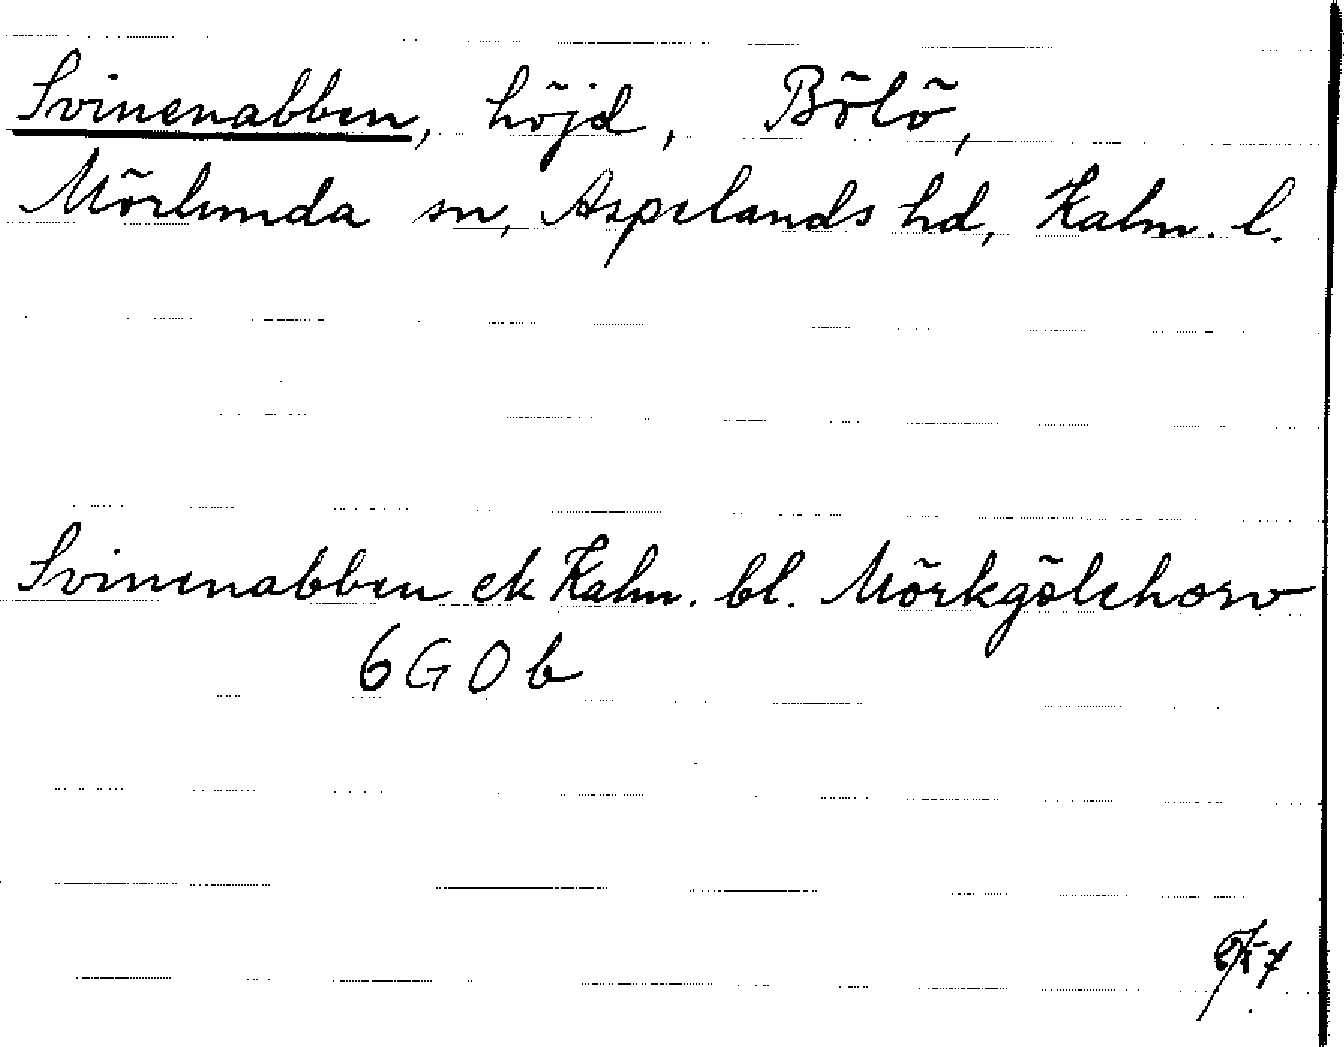 Svinenabben, höjd, Bölö,
Mörlunda sn, Aspelands hd, Kalm. l.
Svinenabben ek Kalm. bl. Mörkgölehorv
6G 0b